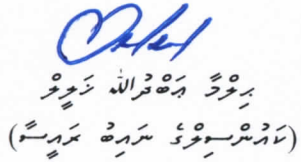 ޙިލްމާ ޢަބްދުﷲ ޚަލީލް
(ކައުންސިލްގެ ނައިބު ރައީސާ)